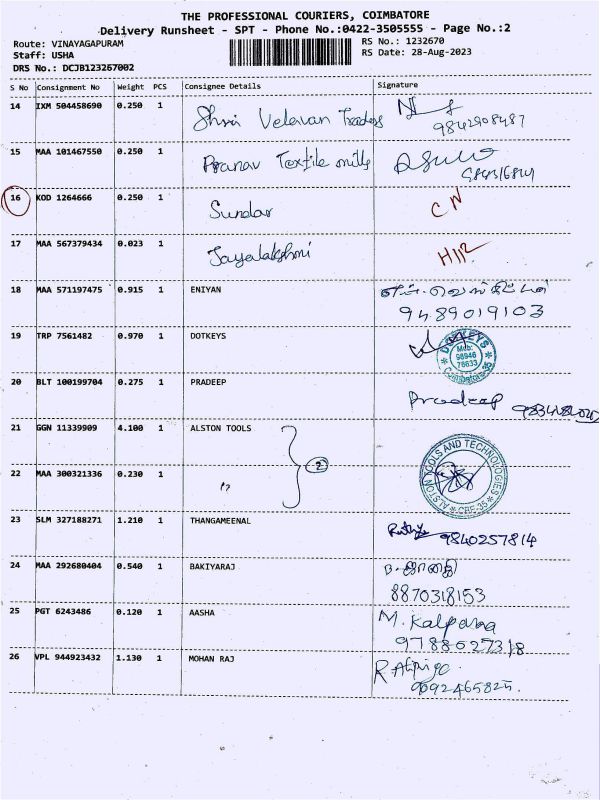 THE PROFESSIONAL COURIERS, COIMBATORE
Delivery Runsheet - SPT - Phone No.:0422-3505555 - Page No.:2
Route: VINAYAGAPURAM RS No.: 1232670
Staff: USHA RS Date: 28-Aug-2023
DRS No.: DCJB123267002
S No Consignment No Weight PCS Consignee Details Signature
14 IXM 504458690 0.250 1 Shri Velavan Traders
9842908487
15 MAA 101467550 0.250 1 Pranav Textile mills
16 KOD 1264666 0.250 1 Sundar CN
17 MAA 567379434 0.023 1 Jayalakshmi
18 MAA 571197475 0.915 1 ENIYAN
9489019103
19 TRP 7561482 0.970 1 DOTKEYS DOTKEYS
Mob:
98946
76633
Coimbatore-35
20 BLT 100199704 0.275 1 PRADEEP Pradeep
21 GGN 11339909 4.100 1 ALSTON TOOLS
2
ALSTON TOOLS AND TECHNOLOGIES
CBE-35
22 MAA 300321336 0.230 1 "
23 SLM 327188271 1.210 1 THANGAMEENAL 9840257814
24 MAA 292680404 0.540 1 BAKIYARAJ
8870318153
25 PGT 6243486 0.120 1 AASHA M. Kalpana
9788627318
26 VPL 944923432 1.130 1 MOHAN RAJ
9092465825.